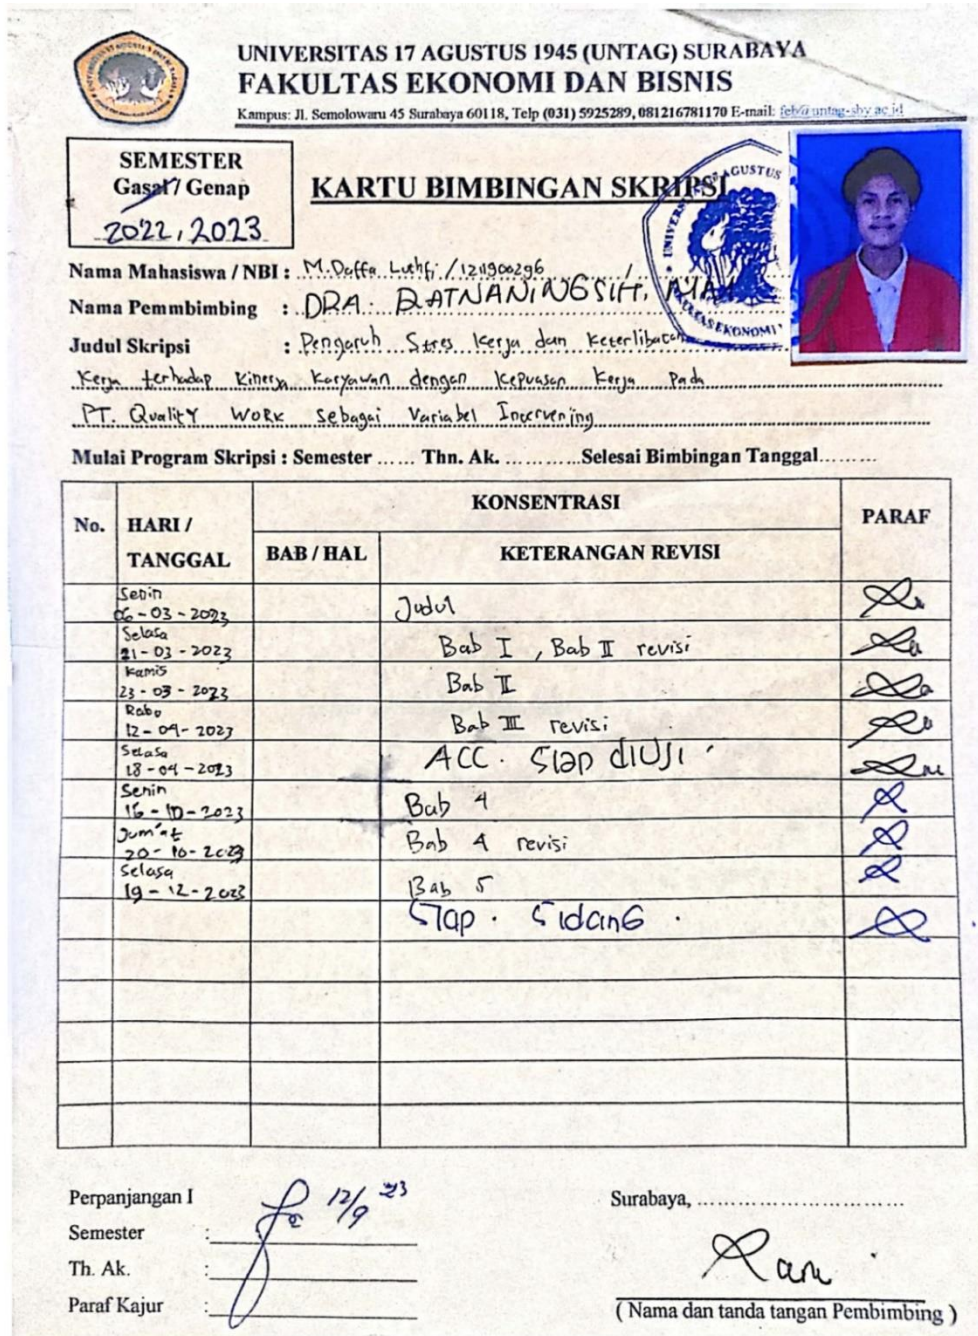 UNIVERSITAS 17 AGUSTUS 1945 (UNTAG) SURABAYA
FAKULTAS EKONOMI DAN BISNIS
Kampus: Jl. Semolowaru 45 Surabaya 60118, Telp (031) 5925289, 081216781170 E-mail: feb@untag-sby.ac.id
SEMESTER
Gasal / Genap
2022, 2023
KARTU BIMBINGAN SKRIPSI
Nama Mahasiswa / NBI : M. Daffa Luthfi / 1211900296
Nama Pemmbimbing : DRA. RATNANINGSIH, MM
Judul Skripsi : Pengaruh Stres Kerja dan Keterlibatan
Kerja terhadap Kinerja Karyawan dengan Kepuasan Kerja Pada
PT. Quality Work sebagai Variabel Intervening
Mulai Program Skripsi : Semester ...... Thn. Ak. .......... Selesai Bimbingan Tanggal.........
No. HARI / TANGGAL KONSENTRASI PARAF
BAB / HAL KETERANGAN REVISI
Senin
06-03-2023 Judul
Selasa
21-03-2023 Bab I , Bab II revisi
Kamis
23-03-2023 Bab II
Rabu
12-04-2023 Bab III revisi
Selasa
18-04-2023 ACC. Siap diUji
Senin
16-10-2023 Bab 4
Jum'at
20-10-2023 Bab 4 revisi
Selasa
19-12-2023 Bab 5
Siap. Sidang.
Perpanjangan I 12/9 23
Semester :
Th. Ak. :
Paraf Kajur :
Surabaya, ..............................
( Nama dan tanda tangan Pembimbing )